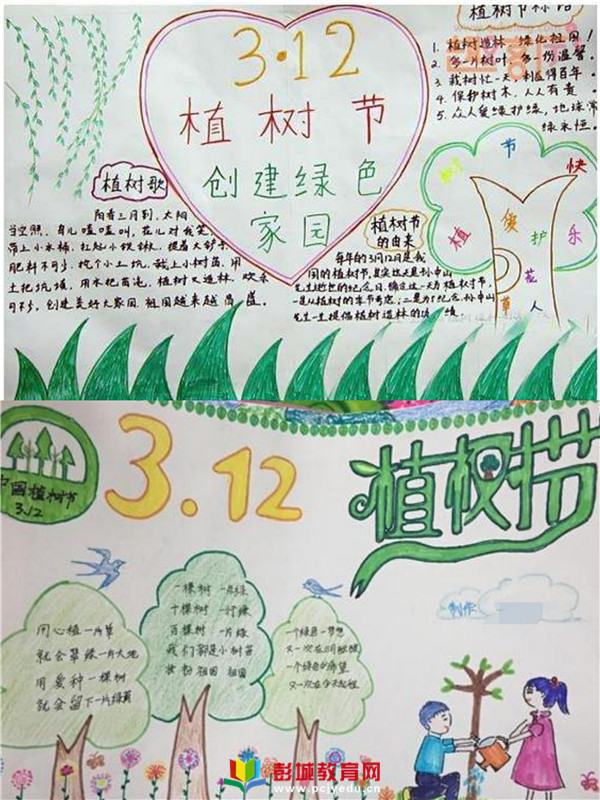 植树节标语
3·12
植树节
创建绿色
家园
1. 植树造林,绿化祖国!
2. 多一片树叶,多一份温馨.
3. 栽树忙一天,利益得百年.
4. 保护树木,人人有责.
5. 众人爱绿护绿,地球常
绿永恒.
植树歌
阳春三月到,太阳
当空照,鸟儿喳喳叫,花儿对我笑,
带上小水桶,扛起小铁锹,提着大
肥料不可少,挖个小土坑,栽上小树苗,用
土把坑填,用水把苗浇,植树又造林,欢乐
可不少,创建美好大家园,祖国越来越昌盛.
植树节
的由来
每年的3月12日是我
国的植树节,其实这天是孙中山
先生逝世的纪念日,确定这一天为植树节,
一是从植树的季节考虑;二是为了纪念孙中山
先生一生提倡植树造林的功绩
节
快
植
爱护
乐
花
草
人
中国植树节
3.12
3.12
植树节
制作:
用心植一片草
就会翠绿一片大地
用爱种一棵树
就会留下一片绿荫
一棵树 一点绿
十棵树 一行绿
百棵树 一片绿
我们都是小树苗
装扮祖国 祖国
一个绿色一梦想
又一次在3月起航
一个绿色的希望
又一次在今天起程
彭城教育网
www.pcjyedu.cn